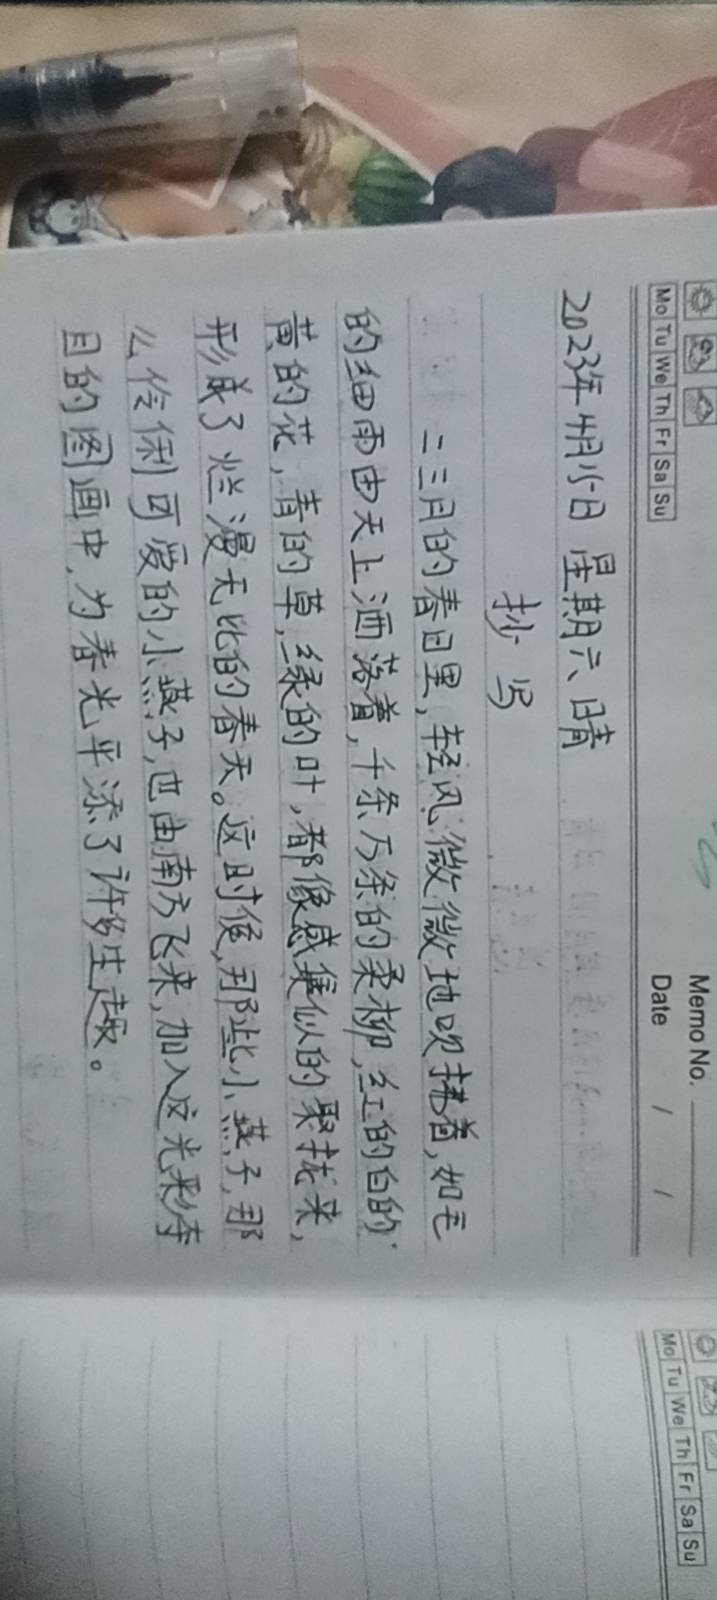 Memo No.
Mo Tu We Th Fr Sa Su
Date / /
2023年4月15日 星期六 晴
抄写
二三月的春日里,轻风微微地吹拂着,如毛
的细雨由天上洒落着,千条万条的柔柳,红的白的
黄的花,青的草,绿的叶,都像感集似的聚拢来,
形成了烂漫无比的春天。这时候,那些小燕子,那
么伶俐可爱的小燕子,也由南方飞来,加入这光彩夺
目的图画中,为春光平添了许多生趣。
Mo Tu We Th Fr Sa Su